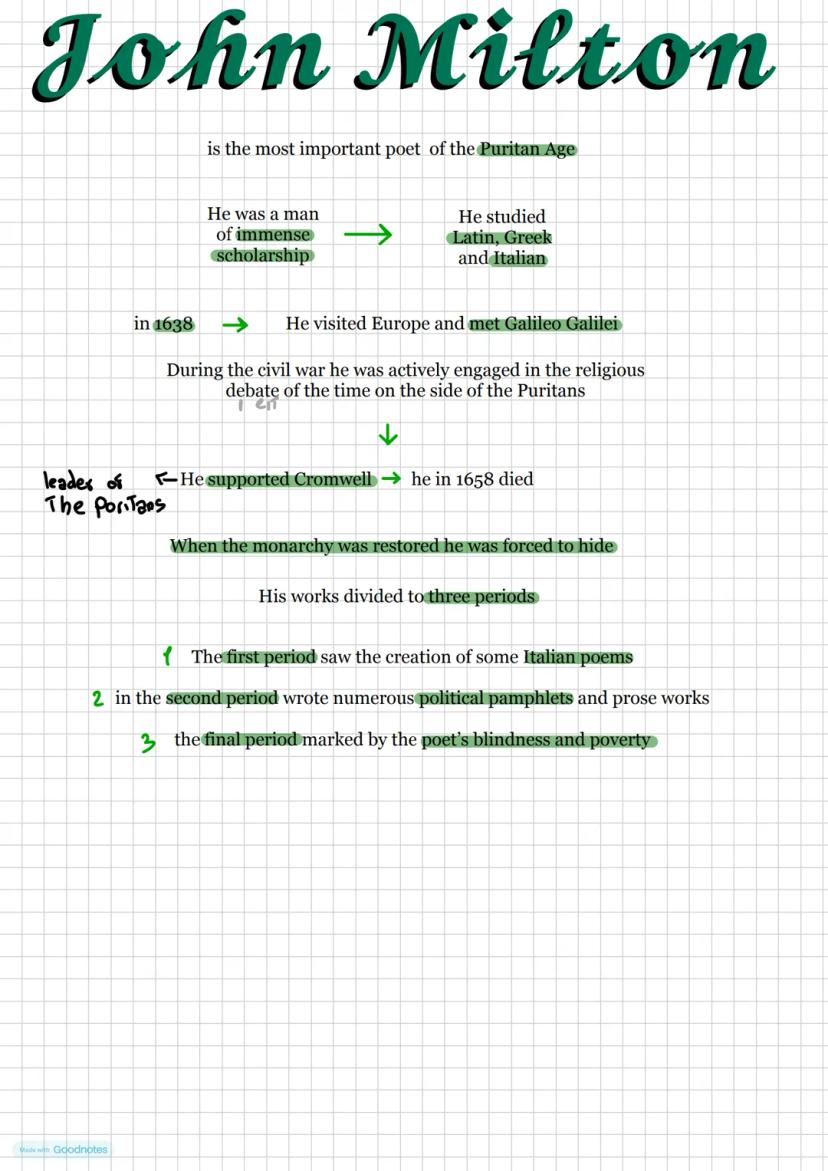 John Milton
is the most important poet of the Puritan Age
He was a man
of immense
scholarship
He studied
Latin, Greek
and Italian
in 1638 → He visited Europe and met Galileo Galilei
During the civil war he was actively engaged in the religious
debate of the time on the side of the Puritans
leader of
The Poritans
He supported Cromwell → he in 1658 died
When the monarchy was restored he was forced to hide
His works divided to three periods
1 The first period saw the creation of some Italian poems
2 in the second period wrote numerous political pamphlets and prose works
3 the final period marked by the poet's blindness and poverty
Made with Goodnotes